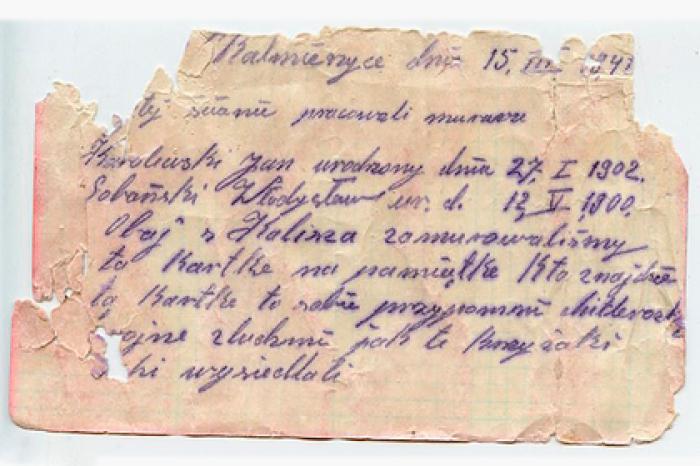 Kalmierzyce dnia 15. III 1941
tejścianie pracowali murarze
Kowalewski Jan urodzony dnia 27. I 1902.
Sobański Władysław ur. d. 12. V. 1900.
Obaj z Kalisza zamurowaliśmy
tą Kartke na pamiątke Kto znajdzie
tą Kartke to sobie przypomni
wojne z ludzmi jak te krzyżaki
wysiedlali